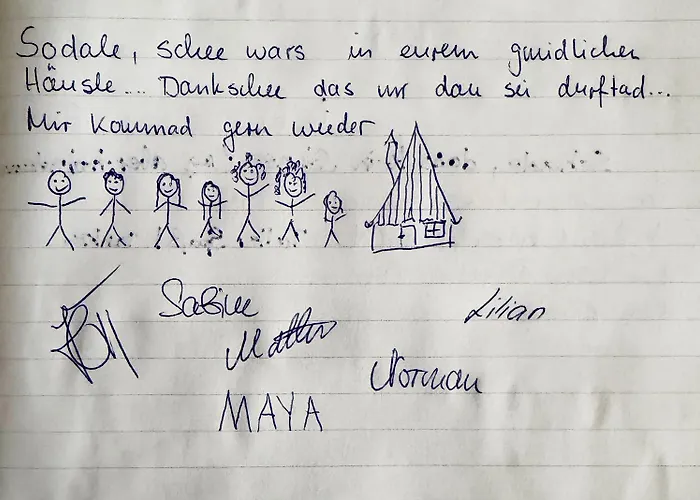 Sodale, schee wars in eurem gmidlichen
Häusle.... Dankschee das mr dau sei durftad...
Mir kommad gern wieder
Sabine
Lilian
Norman
MAYA